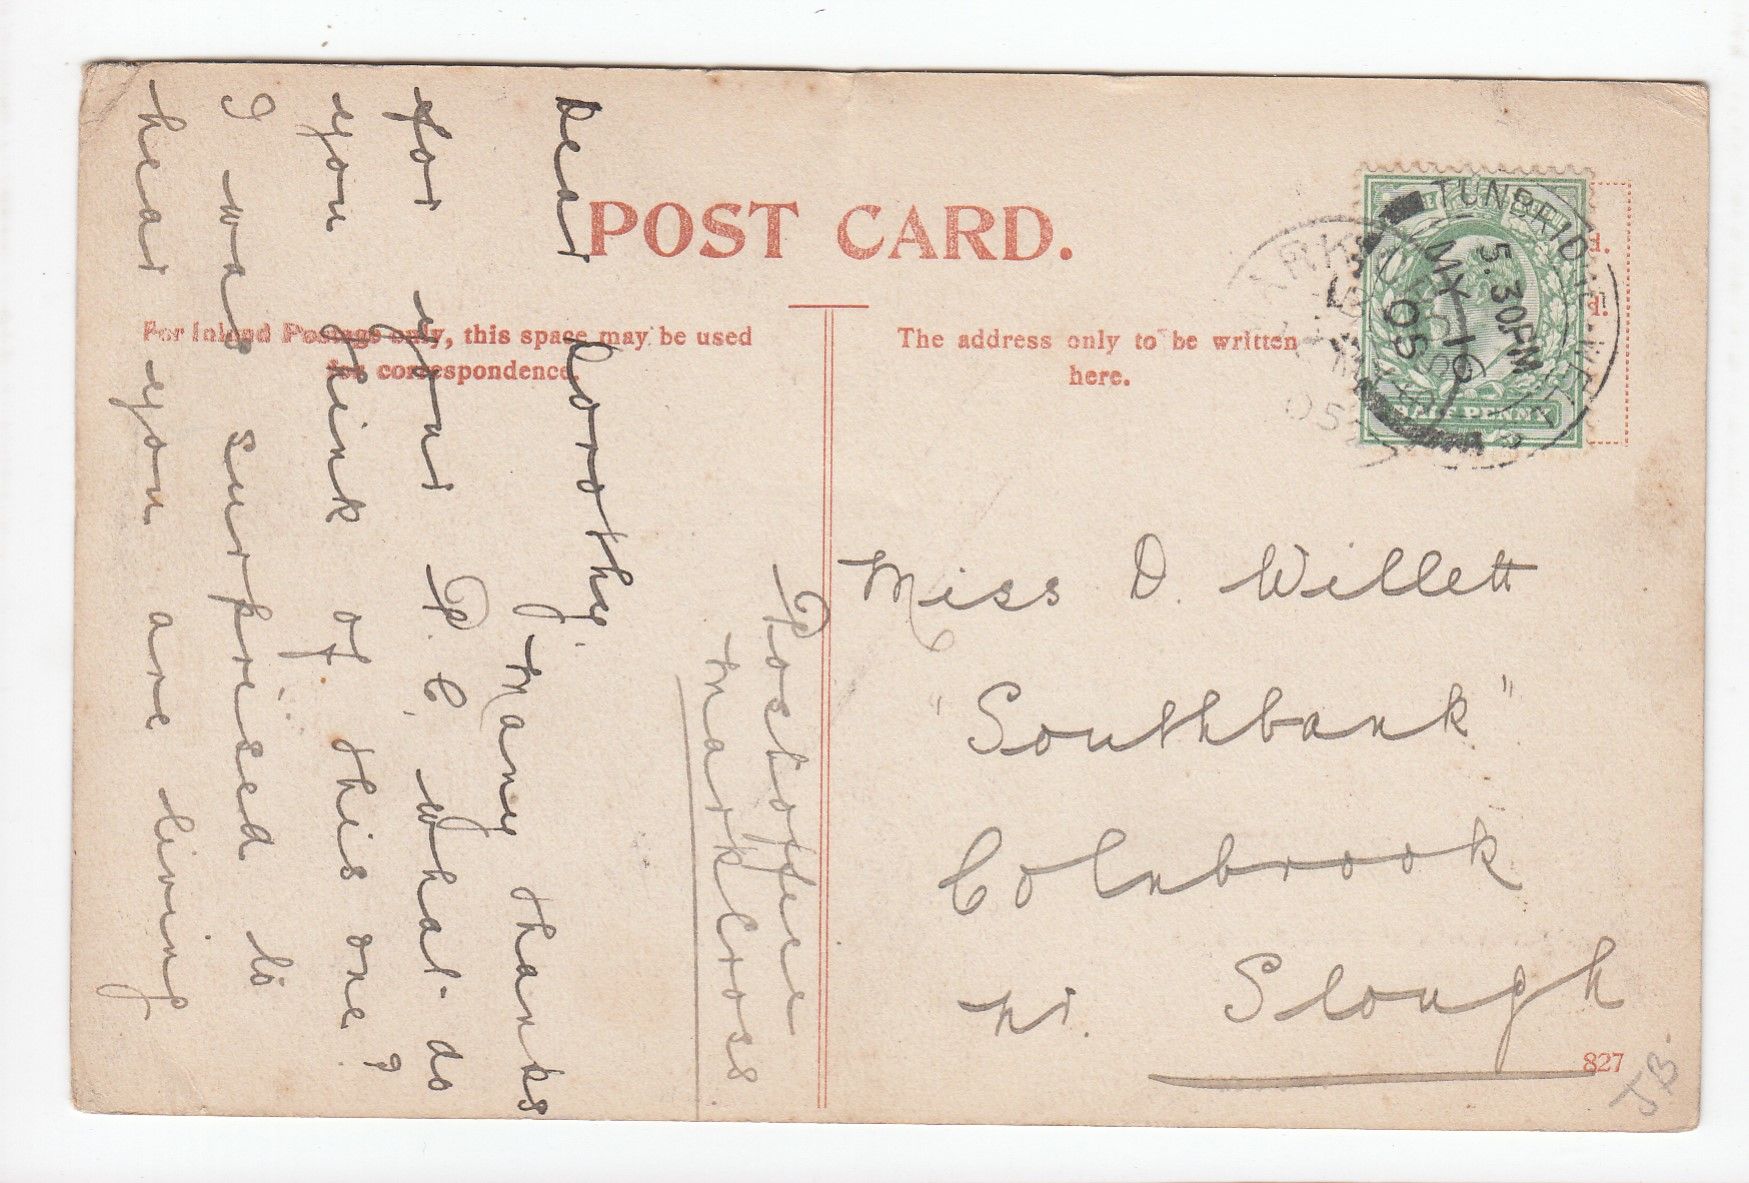 POST CARD.
For Inland Postage only, this space may be used
for correspondence.
The address only to be written
here.
HALF PENNY
TUNBRIDGE WELLS
5.30PM
MY 16
05
MARK
05
Postoffice
Mark Cross
Dear Dorothy.
Many thanks
for your P.C. what do
you think of this one?
I was surprised to
hear you are living
Miss D. Willett
"Southbank"
Colnbrook
nr. Slough
827
JB.